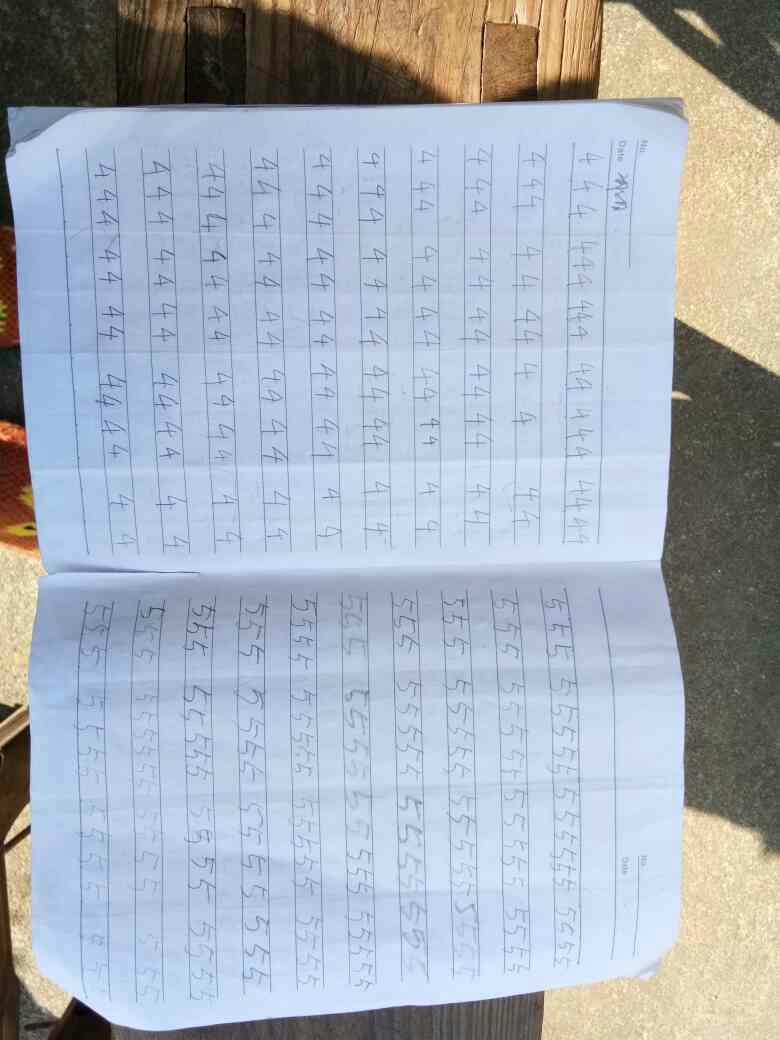 No.
Date
4 4 4 4 4 4 4 4 4 4 4 4 4 4 4 4 4 4
4 4 4 4 4 4 4 4 4 4 4
4 4 4 4 4 4 4 4 4 4 4 4 4
4 4 4 4 4 4 4 4 4 4 4 4 4
4 4 4 4 4 4 4 4 4 4 4 4 4
4 4 4 4 4 4 4 4 4 4 4 4 4
4 4 4 4 4 4 4 4 4 4 4 4 4
4 4 4 4 4 4 4 4 4 4 4 4 4
4 4 4 4 4 4 4 4 4 4 4 4 4
4 4 4 4 4 4 4 4 4 4 4 4 4
No.
Date
5 5 5 5 5 5 5 5 5 5 5 5 5 5 5 5 5 5
5 5 5 5 5 5 5 5 5 5 5 5 5 5 5 5 5 5
5 5 5 5 5 5 5 5 5 5 5 5 5 5 5 5 5
5 5 5 5 5 5 5 5 5 5 5 5 5 5 5 5
5 5 5 5 5 5 5 5 5 5 5 5 5 5 5 5 5
5 5 5 5 5 5 5 5 5 5 5 5 5 5 5 5 5
5 5 5 5 5 5 5 5 5 5 5 5 5 5 5
5 5 5 5 5 5 5 5 5 5 5 5 5 5 5 5
5 5 5 5 5 5 5 5 5 5 5 5 5 5 5
5 5 5 5 5 5 5 5 5 5 5 5 5 5